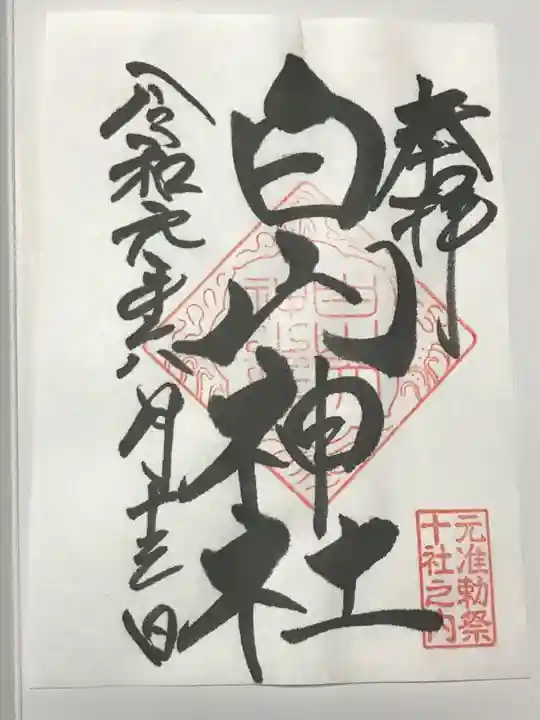 奉拝
白山神社
令和元年八月十三日
元准勅祭
十社之内